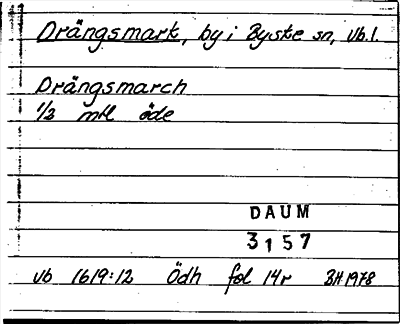 Drängsmark, by i Byske sn, Vb.l.
Drängsmarch
1/3 mtl öde
DAUM
3157
Vb 1619:12 Ödh fol 14r BH 1978